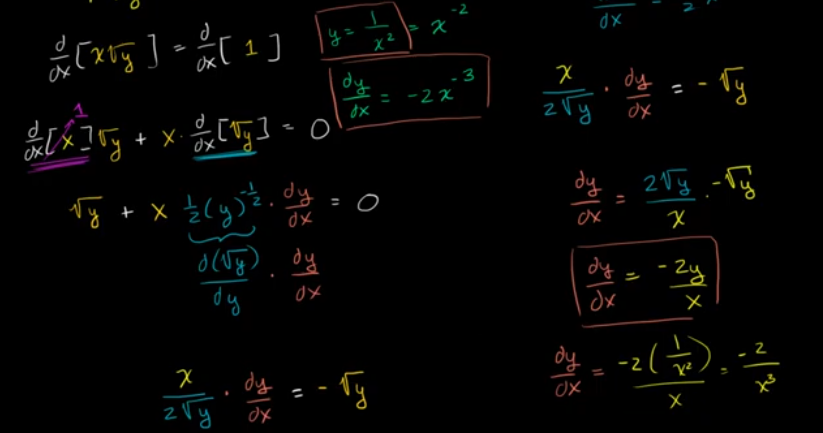 d/dx [x√y] = d/dx [1]
y = 1/x² = x⁻²
dy/dx = -2x⁻³
d/dx [x] √y + x · d/dx [√y] = 0
1
√y + x ½(y)^-½ · dy/dx = 0
d(√y)/dy · dy/dx
x/2√y · dy/dx = -√y
dx
x/2√y · dy/dx = -√y
dy/dx = 2√y/x · -√y
dy/dx = -2y/x
dy/dx = -2(1/x²)/x = -2/x³